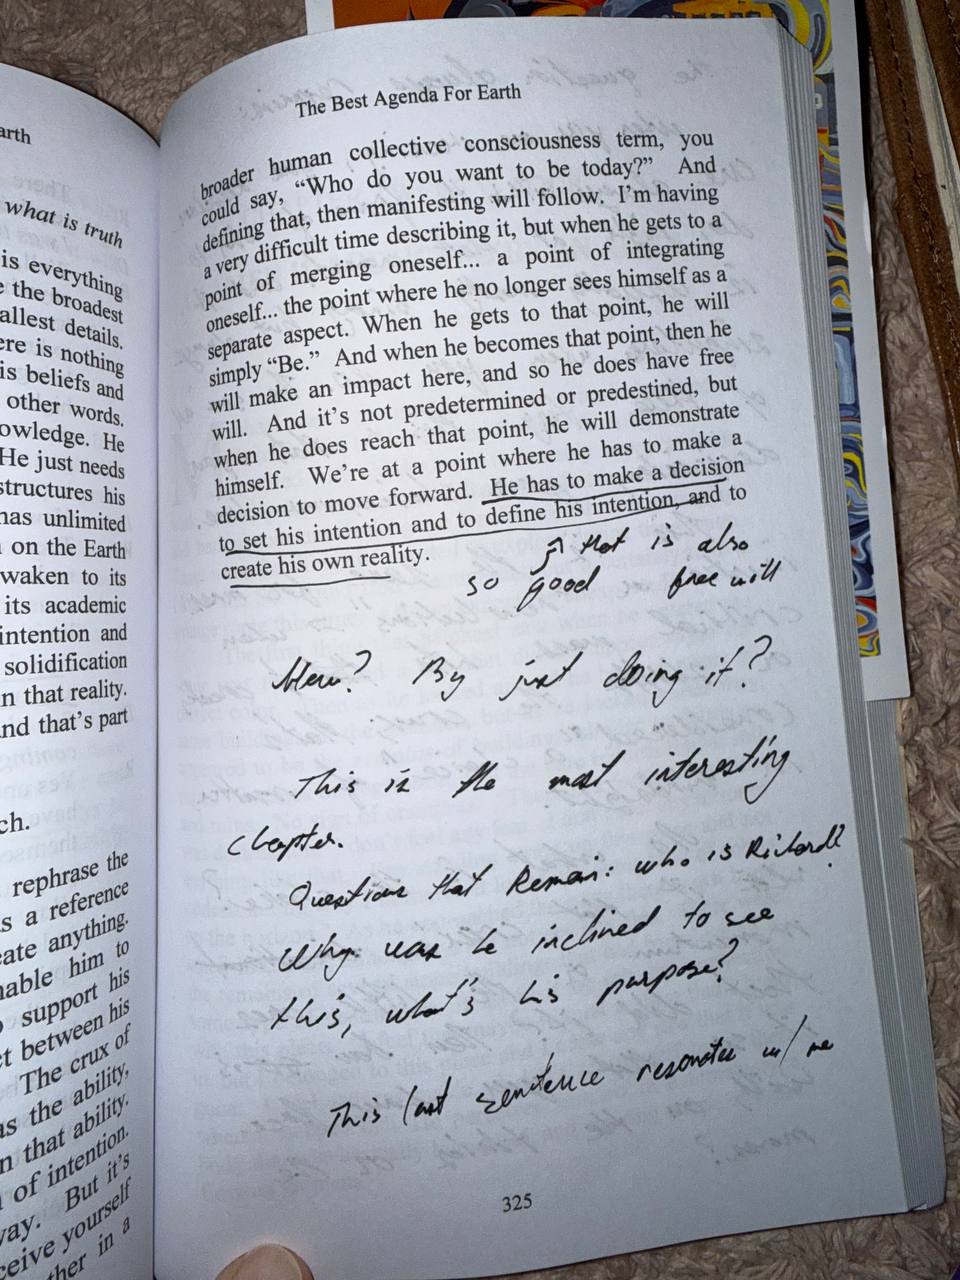 arth
what is truth
is everything
e the broadest
allest details.
ere is nothing
is beliefs and
other words.
owledge. He
He just needs
structures his
has unlimited
on the Earth
waken to its
its academic
intention and
solidification
n that reality.
nd that's part
ch.
rephrase the
s a reference
ate anything.
nable him to
support his
ct between his
The crux of
as the ability,
n that ability.
of intention.
vay. But it's
ceive yourself
ther in a
The Best Agenda For Earth
broader human collective consciousness term, you
could say, “Who do you want to be today?” And
defining that, then manifesting will follow. I’m having
a very difficult time describing it, but when he gets to a
point of merging oneself... a point of integrating
oneself... the point where he no longer sees himself as a
separate aspect. When he gets to that point, he will
simply “Be.” And when he becomes that point, then he
will make an impact here, and so he does have free
will. And it’s not predetermined or predestined, but
when he does reach that point, he will demonstrate
himself. We’re at a point where he has to make a
decision to move forward. He has to make a decision
to set his intention and to define his intention, and to
create his own reality.
that is also
so good free will
How? By just doing it?
This is the most interesting
chapter.
Questions that Remain: who is Richard?
Why was he inclined to see
this, what's his purpose?
This last sentence resonates w/ me
325